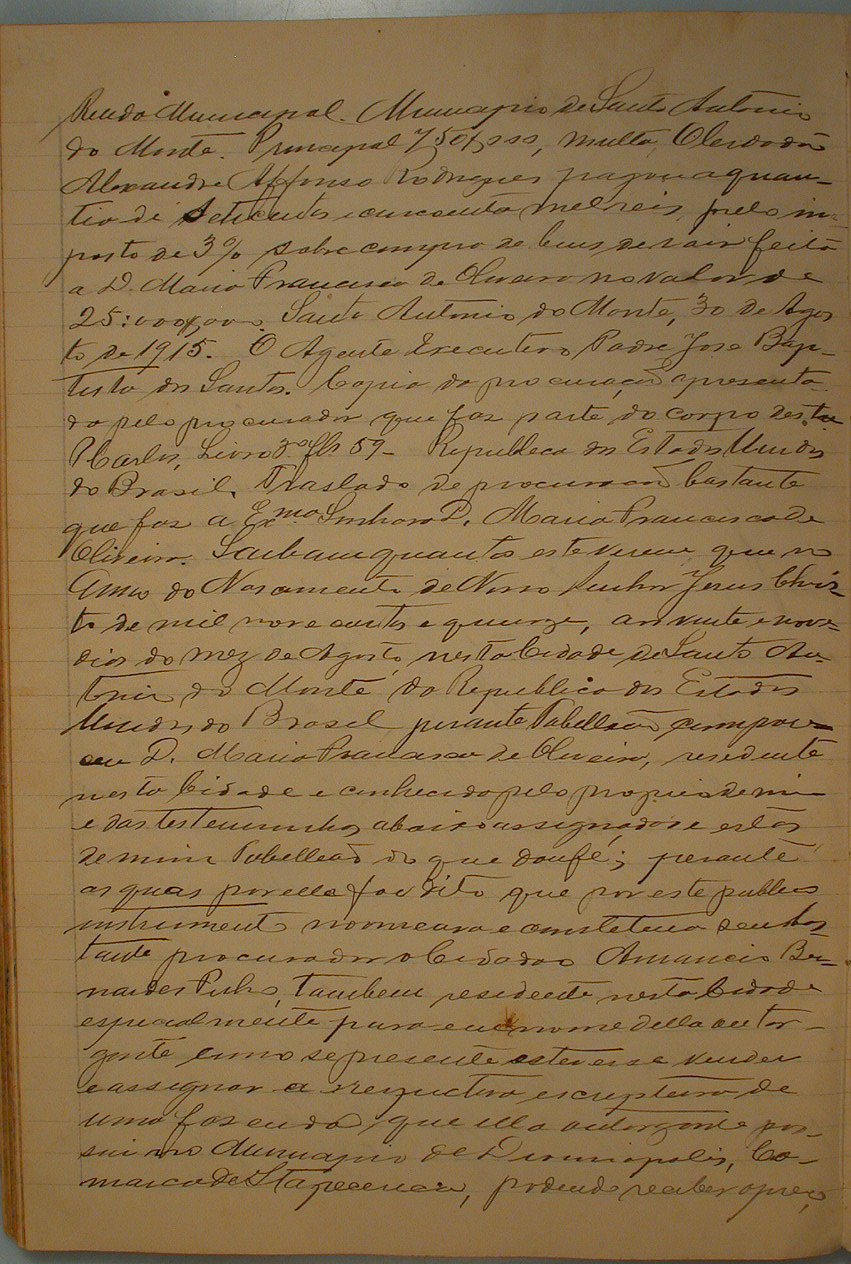 Renda Municipal. Municipio de Santo Antonio
do Monte. Principal 750$000, multa, O Cidadão
Alexandre Affonso Rodrigues pagou a quan-
tia de setecentos e cincoenta mil reis, pelo im-
posto de 3% sobre compra de bens de raiz feita
a D. Maria Francisca de Oliveira no valor de
25:000$000. Santo Antonio do Monte, 30 de Agos
to de 1915. O Agente Executivo Padre José Bap-
tista dos Santos. Copia da procuração apresenta-
da pelo procurador que faz parte do corpo desta
Livro 3º fls 59 - Republica dos Estados Unidos
do Brasil. Traslado de procuração bastante
que faz a Exma Senhora D. Maria Francisca de
Oliveira. Saibam quantos este virem que no
Anno do Nascimento de Nosso Senhor Jesus Chris-
to de mil nove centos e quinze, aos vinte e nove
dias do mez de Agosto, nesta Cidade de Santo An-
tonio do Monte, da Republica dos Estados
Unidos do Brasil perante Tabellião compare-
ceu D. Maria Francisca de Oliveira, residente
nesta Cidade e conhecida pela propria de mim
e das testemunhas abaixo assignadas e estas
de mim Tabellião do que dou fé; perante
as quaes por ella foi dito que por este publico
instrumento nomeava e constituia seu bas-
tante procurador o Cidadão Amancio Ber-
nardes Pinho, tambem residente nesta Cidade
especialmente para em nome della outor-
gante como se presente estivesse vender
e assignar a respectiva escriptura de
uma fazenda que ella outorgante pos-
sui no Municipio de Divinopolis, Co-
marca de Itapecerica, podendo receber o preço,